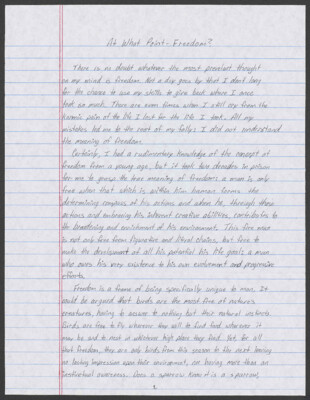 At What Point - Freedom?
There is no doubt whatsoever the most prevalent thought
on my mind is freedom. Not a day goes by that I don't long
for the chance to use my skills to give back where I once
took so much. There are even times when I still cry from the
karmic pain of the life I lost for the life I took. All my
mistakes led me to the root of my folly: I did not understand
the meaning of freedom.
Certainly, I had a rudimentary knowledge of the concept of
freedom from a young age, but it took two decades in prison
for me to grasp the true meaning of freedom: a man is only
free when that which is within him human forms the
determining compass of his actions and when he, through these
actions and embracing his inherent creative abilities, contributes to
the broadening and enrichment of his environment. This free man
is not only free from figurative and literal chains, but free to
make the development of all his potential his life goal; a man
who owes his very existence to his own excitement and progressive
efforts.
Freedom is a frame of being specifically unique to man. It
could be argued that birds are the most free of nature's
creatures, having to answer to nothing but their natural instincts.
Birds are free to fly wherever they will to find food, wherever it
may be and to mate in whichever high place they find. Yet, for all
that freedom, they are only birds from this season to the next having
no lasting impression upon their environment, or having more than an
instinctual awareness. Does a sparrow know it is a sparrow,
1.